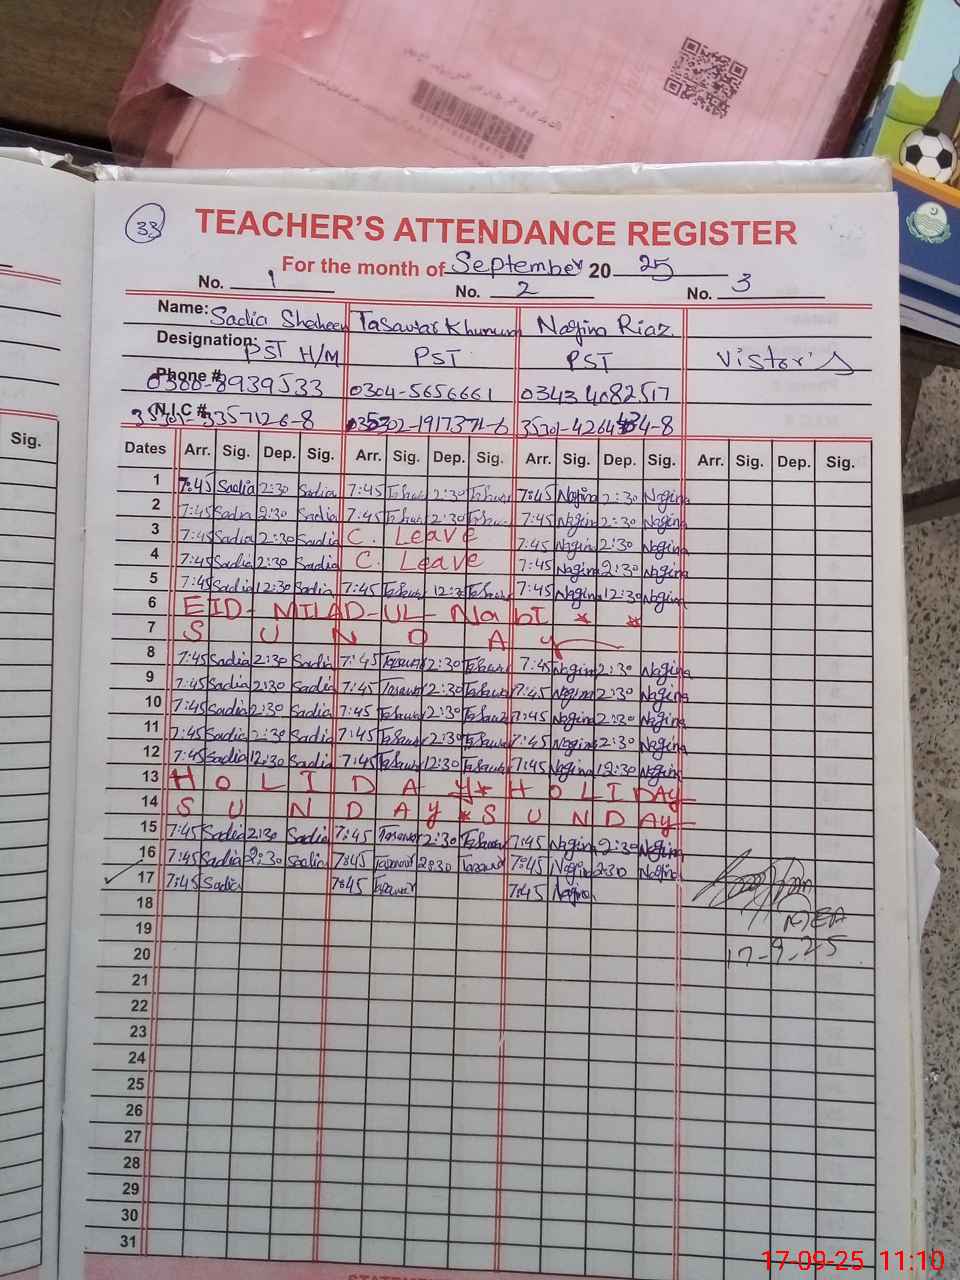 33
TEACHER'S ATTENDANCE REGISTER
For the month of September 2025
No. 1 No. 2 No. 3
Name: Sadia Shaheen Tasawar Khunum Nagina Riaz
Designation: PST H/M PST PST Vistor's
Phone # 0300-8939533 0304-5656661 0343 4082517
N.I.C #
Sig. Dates Arr. Sig. Dep. Sig. Arr. Sig. Dep. Sig. Arr. Sig. Dep. Sig. Arr. Sig. Dep. Sig.
1 7:45 Sadia 2:30 Sadia 7:45 2:30 7:45 Nagina 2:30 Nagina
2 7:45 Sadia 2:30 Sadia 7:45 2:30 7:45 Nagina 2:30 Nagina
3 7:45 Sadia 2:30 Sadia C. Leave 7:45 Nagina 2:30 Nagina
4 7:45 Sadia 2:30 Sadia C. Leave 7:45 Nagina 2:30 Nagina
5 7:45 Sadia 12:30 Sadia 7:45 Tasawar 12:30 Tasawar 7:45 Nagina 12:30 Nagina
6 EID-MILAD-UL-NabI * *
7 S U N D A Y
8 7:45 Sadia 2:30 Sadia 7:45 Tasawar 2:30 Tasawar 7:45 Nagina 2:30 Nagina
9 7:45 Sadia 2:30 Sadia 7:45 Tasawar 2:30 Tasawar 7:45 Nagina 2:30 Nagina
10 7:45 Sadia 2:30 Sadia 7:45 Tasawar 2:30 Tasawar 7:45 Nagina 2:30 Nagina
11 7:45 Sadia 2:30 Sadia 7:45 Tasawar 2:30 Tasawar 7:45 Nagina 2:30 Nagina
12 7:45 Sadia 12:30 Sadia 7:45 Tasawar 12:30 Tasawar 7:45 Nagina 12:30 Nagina
13 H O L I D A Y * H O L I DAY
14 S U N D A Y * S U N D AY
15 7:45 Sadia 2:30 Sadia 7:45 Tasawar 2:30 Tasawar 7:45 Nagina 2:30 Nagina
16 7:45 Sadia 2:30 Sadia 7:45 Tasawar 2:30 Tasawar 7:45 Nagina 2:30 Nagina
17 7:45 Sadia 7:45 Tasawar 7:45 Nagina
18
MEA
19
17-9-25
20
21
22
23
24
25
26
27
28
29
30
31
17-09-25 11:10